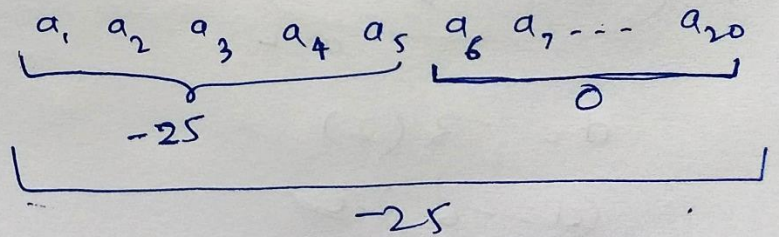 a₁ a₂ a₃ a₄ a₅ a₆ a₇ --- a₂₀
-25 0
-25